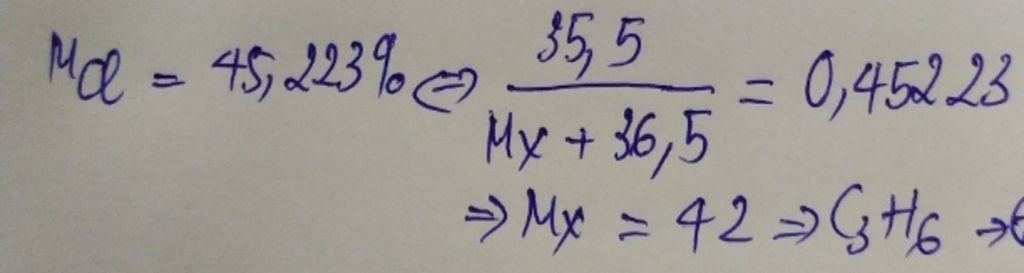 MCl = 45,223% <=> 35,5 / (Mx + 36,5) = 0,45223
=> Mx = 42 => C3H6 →